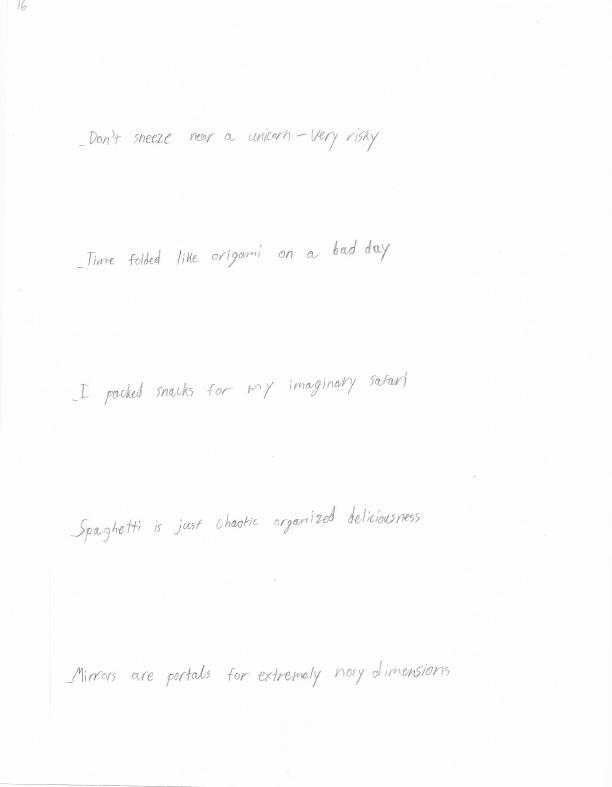 16
_Don't sneeze near a unicorn – Very risky
_Time folded like origami on a bad day
_I packed snacks for my imaginary safari
_Spaghetti is just chaotic organized deliciousness
_Mirrors are portals for extremely nosy dimensions